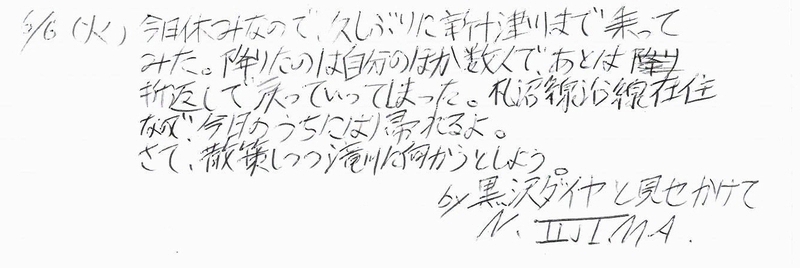 5/6(火) 今日休みなので、久しぶりに新十津川まで乗って
みた。降りたのは自分のほか数人で、あとは
折返しで戻っていってしまった。札沼線沿線在住
なので、今日のうちには帰れるよ。
さて、散策しつつ滝川に向かうとしよう。
by 黒沢ダイヤ と見せかけて
N. IIJIMA.